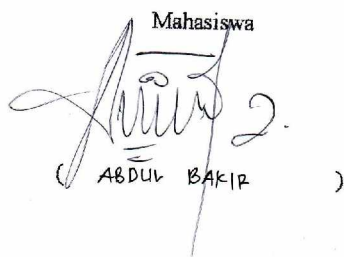 Mahasiswa
2.
( ABDUL BAKIR )